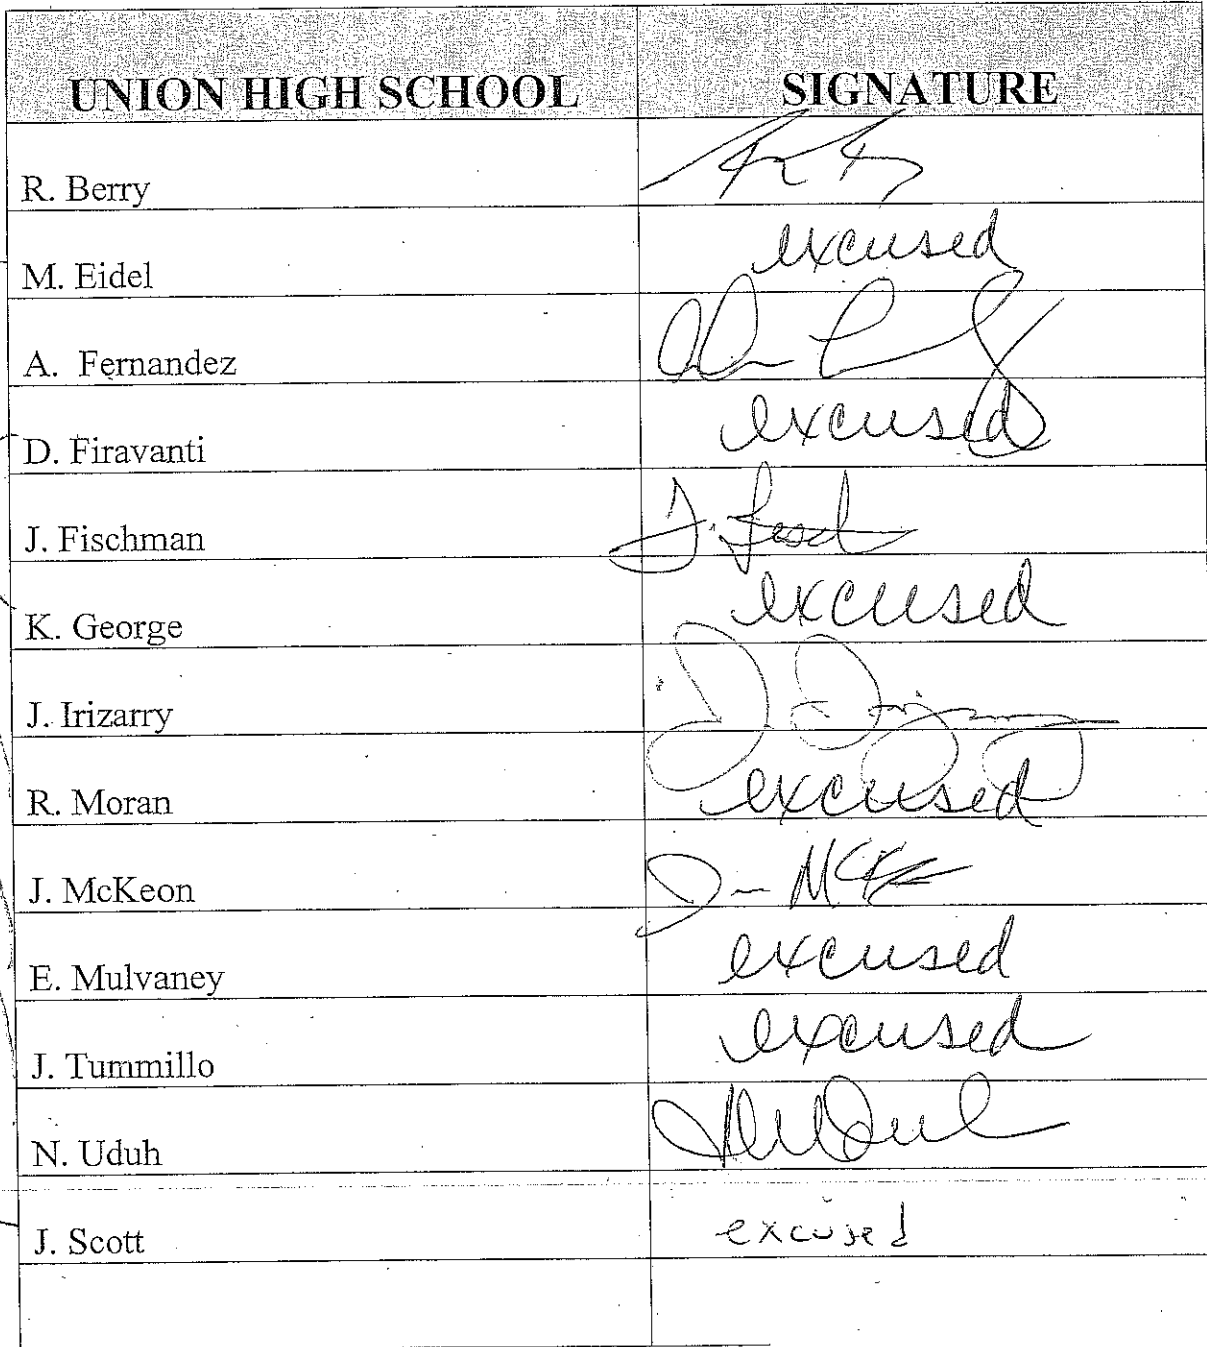 UNION HIGH SCHOOL SIGNATURE
R. Berry
M. Eidel excused
A. Fernandez
D. Firavanti excused
J. Fischman
K. George excused
J. Irizarry
R. Moran excused
J. McKeon
E. Mulvaney excused
J. Tummillo excused
N. Uduh
J. Scott excused